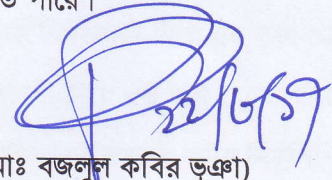 পারে।
২২/৮/১৭
মোঃ বজলুল কবির ভূঞা)